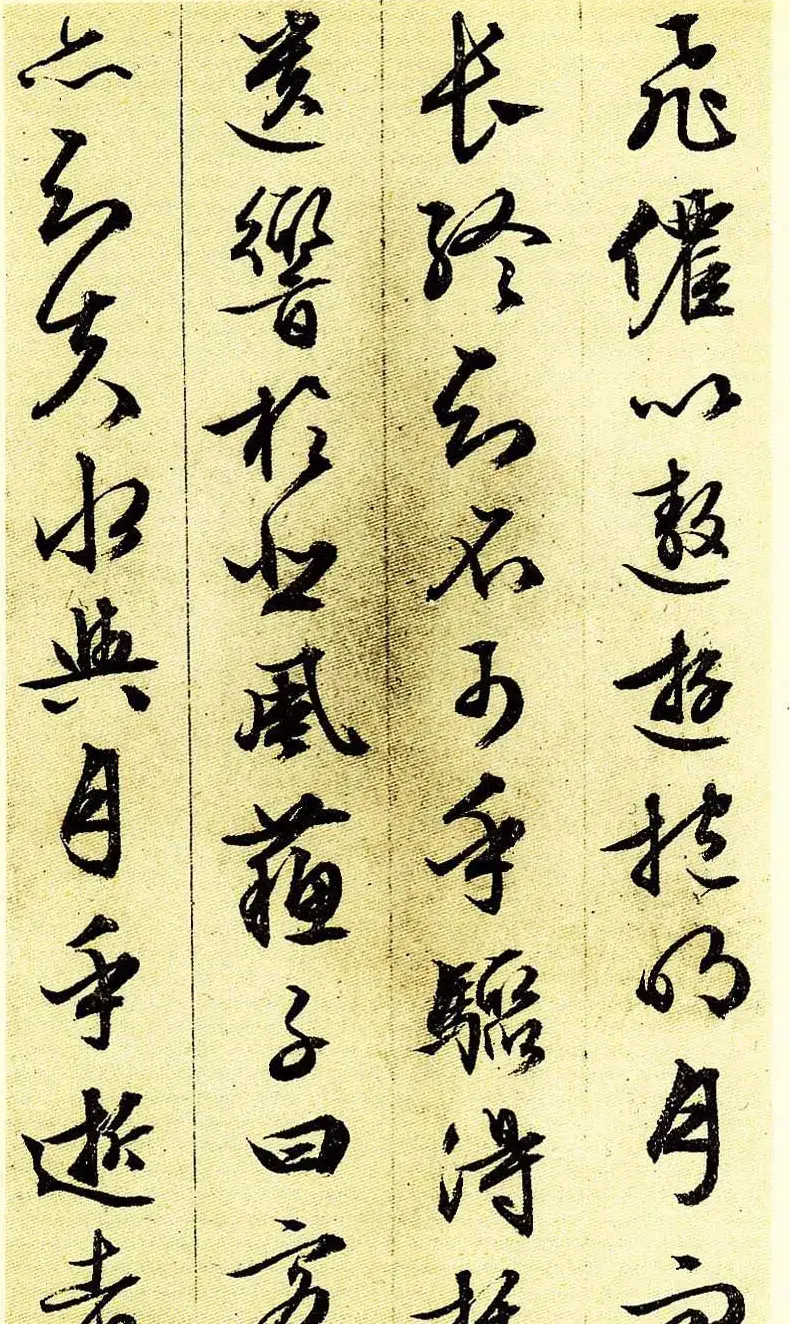 飛僊以遨遊抱明月而
長終知不可乎驟得託
遺響於悲風蘇子曰客
亦知夫水與月乎逝者